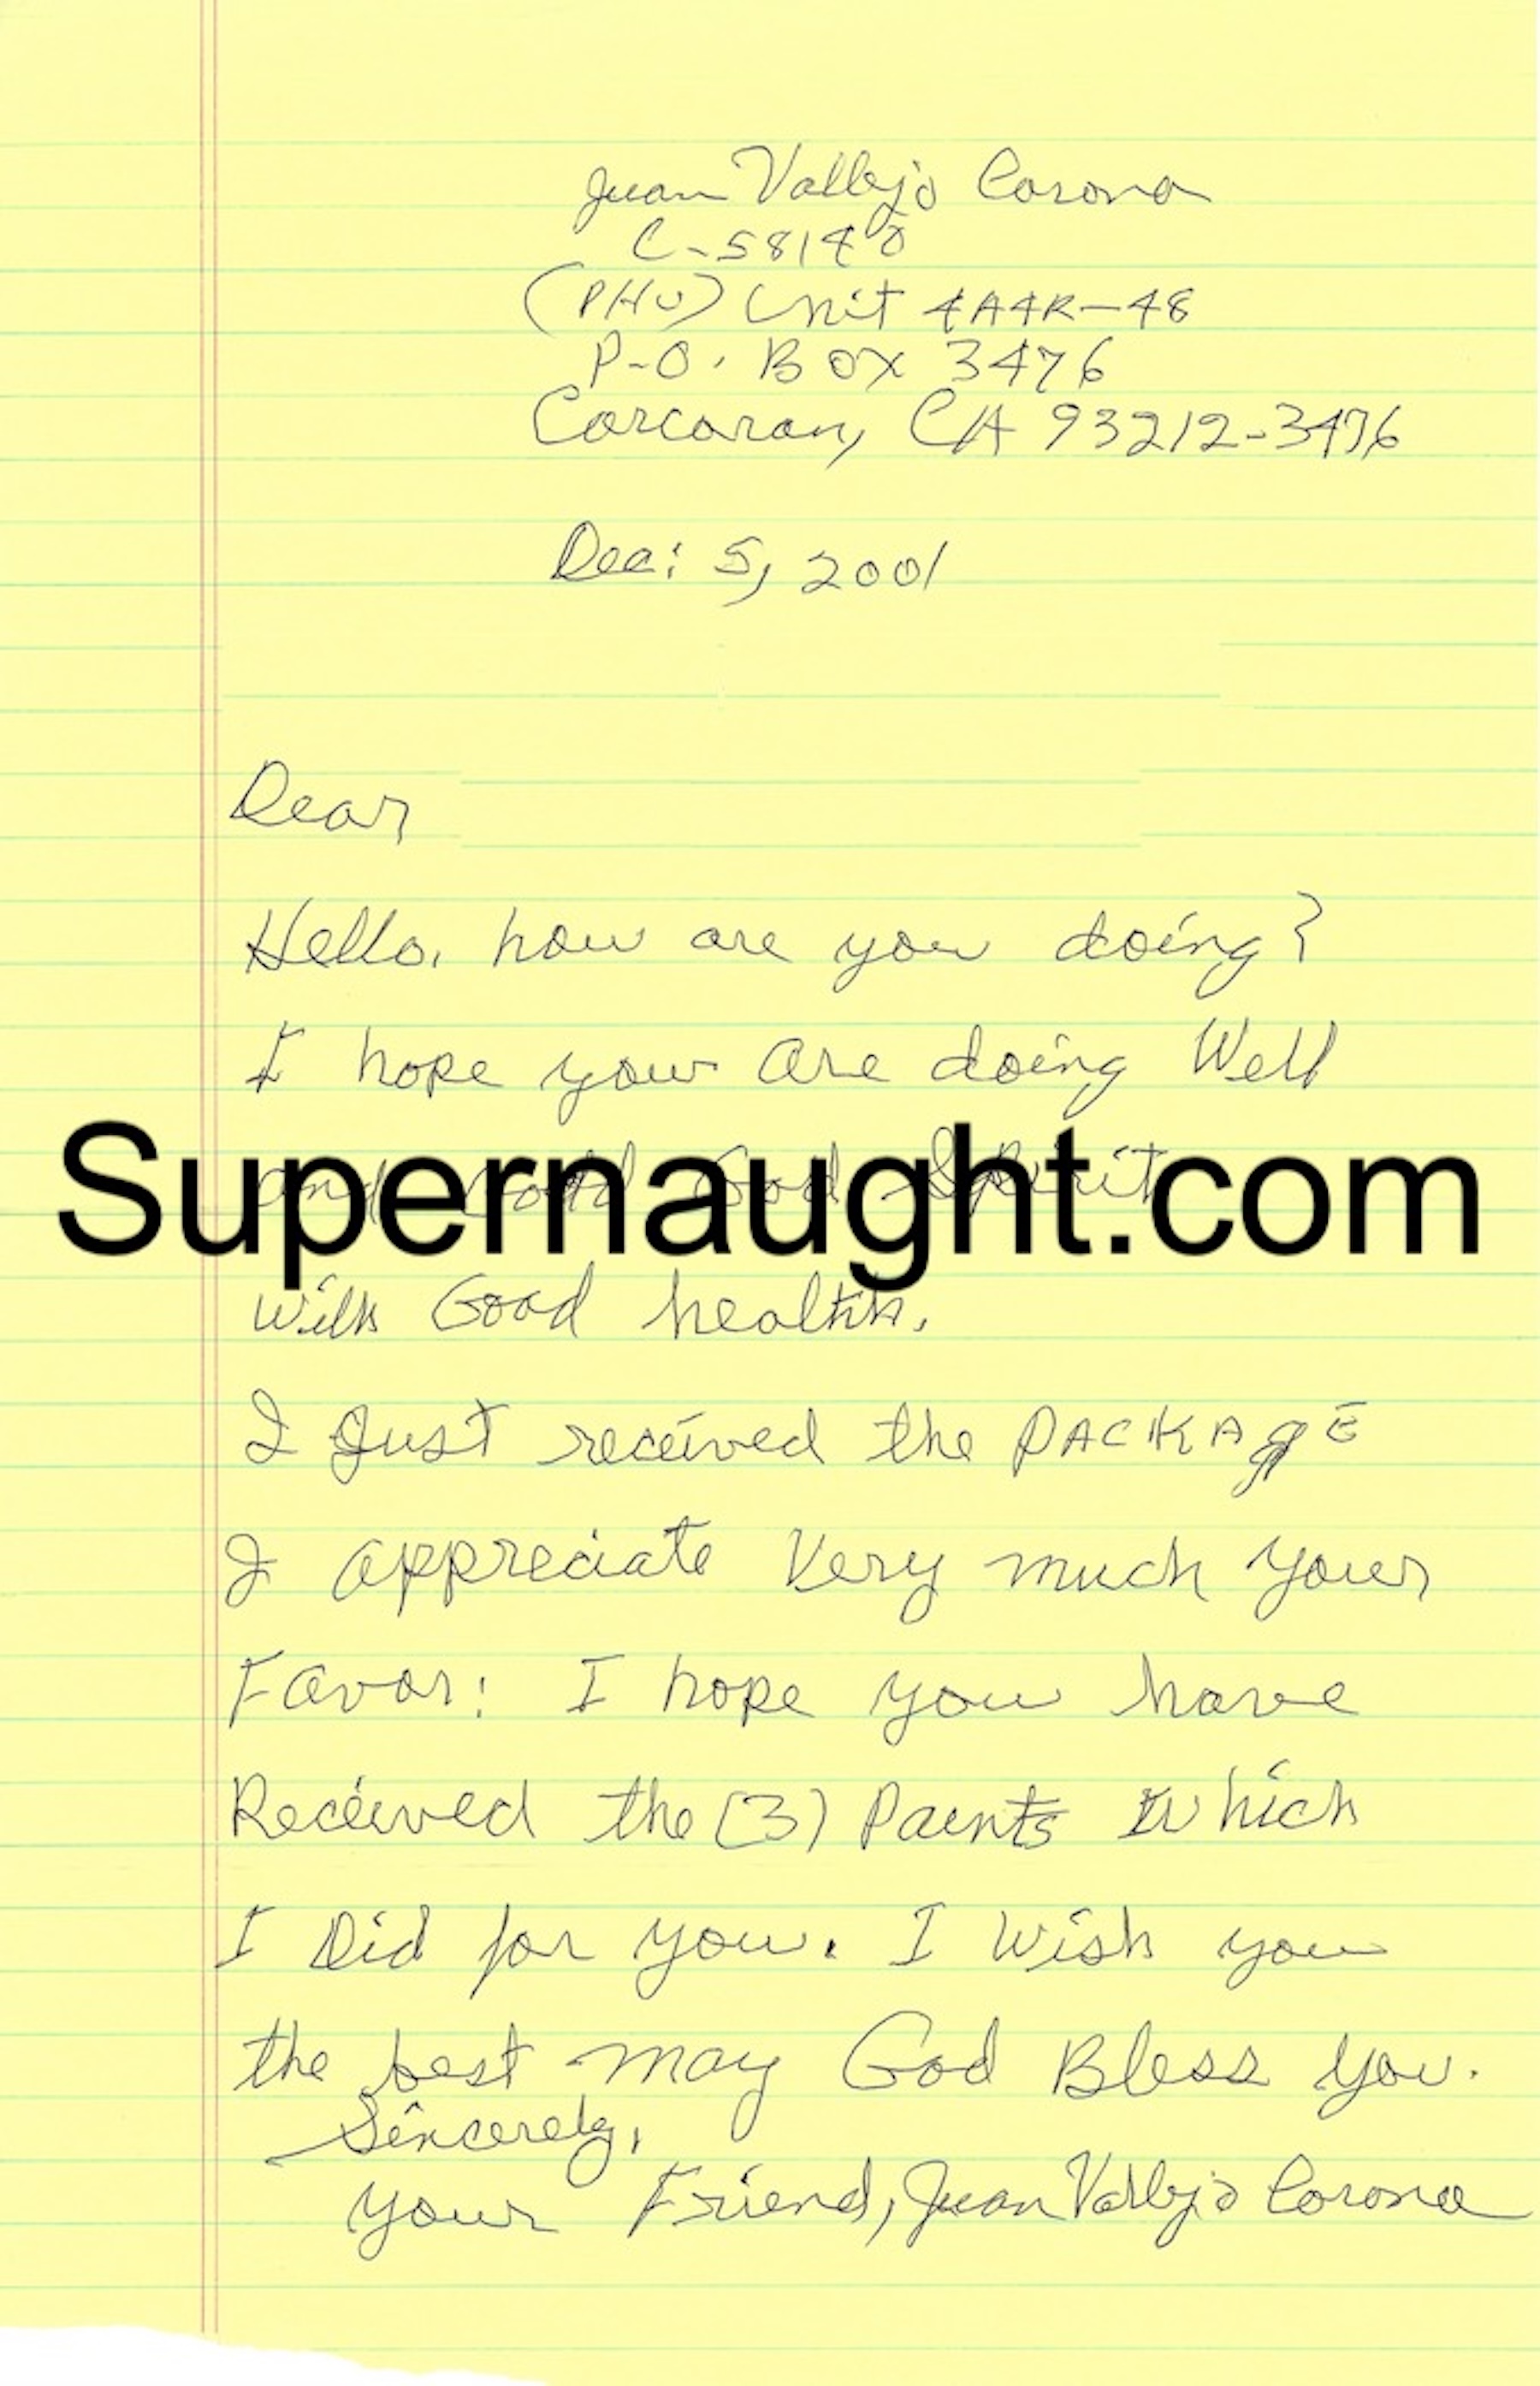 Juan Vallejo Corona
C-58140
(PHU) Unit 4A4R-48
P-O. Box 3476
Corcoran, CA 93212-3476
Dec: 5, 2001
Dear
Hello, how are you doing?
I hope your are doing Well
and God Spirit
Supernaught.com
with Good health.
I Just received the PACKAgE
I appreciate Very much your
Favor: I hope you have
Received the (3) Paints Which
I Did for you. I Wish you
the best may God Bless you.
Sincerely,
your Friend, Juan Vallejo Corona